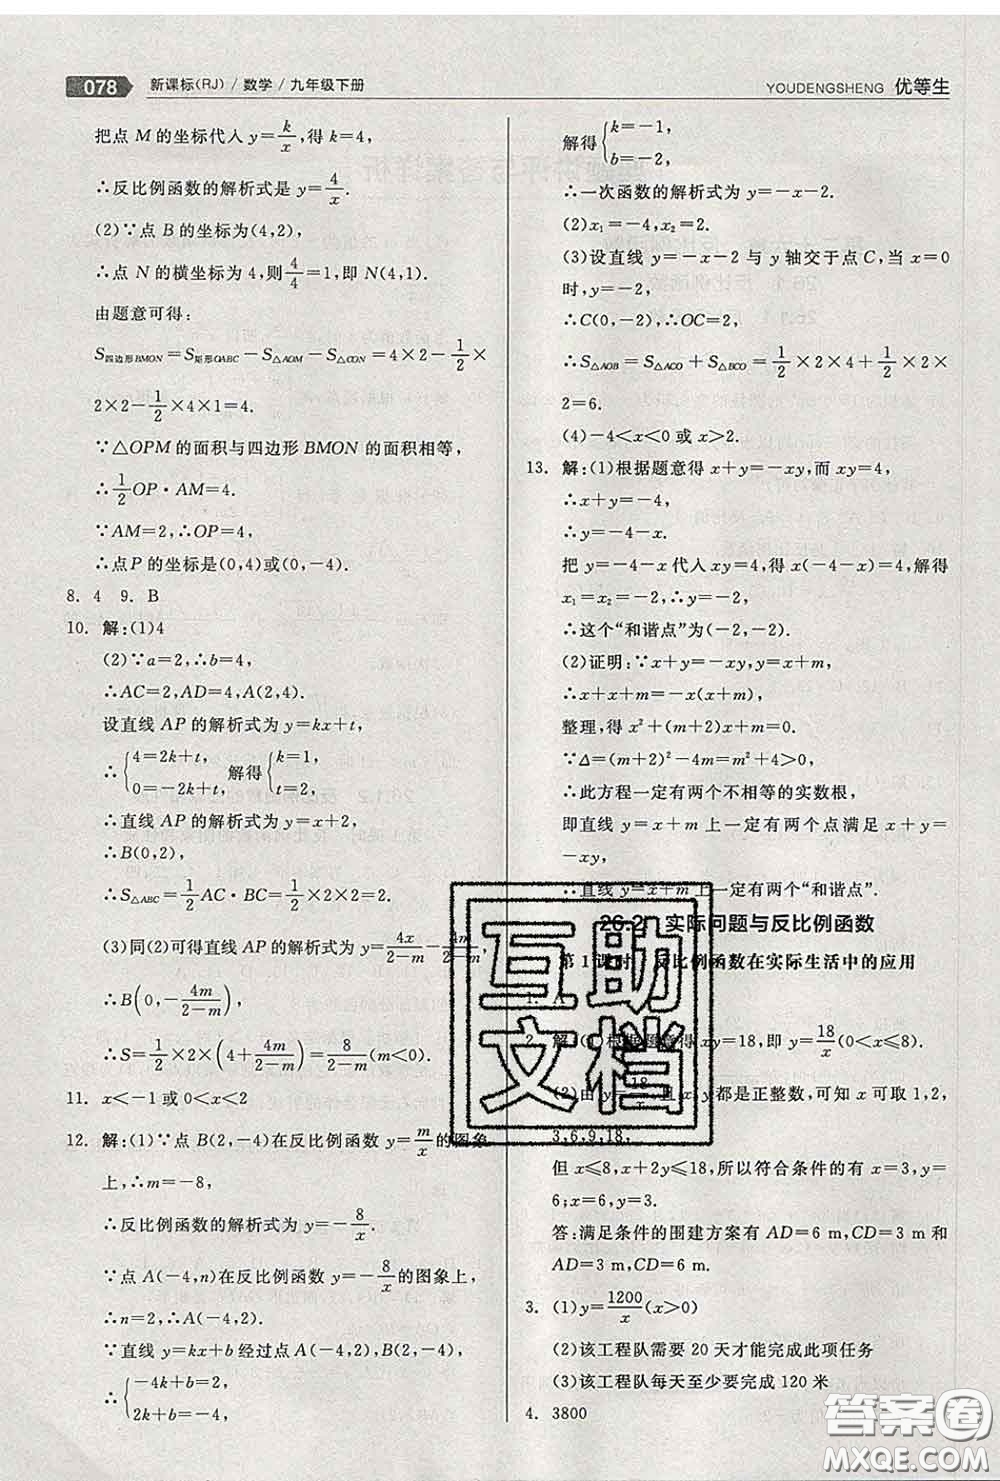 078 新课标(RJ)/数学/九年级下册
YOUDENGSHENG 优等生
把点 M 的坐标代入 y=k/x,得 k=4,
∴反比例函数的解析式是 y=4/x.
(2)∵点 B 的坐标为(4,2),
∴点 N 的横坐标为 4,则4/4=1,即 N(4,1).
由题意可得:
S四边形BMON=S矩形OABC-S△AOM-S△CON=4×2-1/2×
2×2-1/2×4×1=4.
∵△OPM 的面积与四边形 BMON 的面积相等,
∴1/2OP·AM=4.
∵AM=2,∴OP=4.
∴点P 的坐标是(0,4)或(0,-4).
8. 4 9. B
10. 解:(1)4
(2)∵a=2,∴b=4,
∴AC=2,AD=4,A(2,4).
设直线 AP 的解析式为 y=kx+t,
∴{4=2k+t, 0=-2k+t, 解得{k=1, t=2,
∴直线 AP 的解析式为 y=x+2,
∴B(0,2),
∴S△ABC=1/2AC·BC=1/2×2×2=2.
(3)同(2)可得直线 AP 的解析式为 y=4x/2-m-4m/2-m,
∴B(0,-4m/2-m),
∴S=1/2×2×(4+4m/2-m)=8/2-m(m<0).
11. x<-1 或 0<x<2
12. 解:(1)∵点 B(2,-4)在反比例函数 y=m/x的图象
上,∴m=-8,
∴反比例函数的解析式为 y=-8/x.
∵点 A(-4,n)在反比例函数 y=-8/x的图象上,
∴n=2,∴A(-4,2).
∵直线 y=kx+b 经过点 A(-4,2),B(2,-4),
∴{-4k+b=2, 2k+b=-4,
解得{k=-1, b=-2,
∴一次函数的解析式为 y=-x-2.
(2)x₁=-4,x₂=2.
(3)设直线 y=-x-2 与 y 轴交于点 C,当 x=0
时,y=-2,
∴C(0,-2),∴OC=2,
∴S△AOB=S△ACO+S△BCO=1/2×2×4+1/2×2×
2=6.
(4)-4<x<0 或 x>2.
13. 解:(1)根据题意得 x+y=-xy,而 xy=4,
∴x+y=-4,
∴y=-4-x.
把 y=-4-x代入 xy=4,得-x²-4x=4,解得
x₁=x₂=-2,∴y=-2,
∴这个“和谐点”为(-2,-2).
(2)证明:∵x+y=-xy,y=x+m,
∴x+x+m=-x(x+m),
整理,得 x²+(m+2)x+m=0.
∵Δ=(m+2)²-4m=m²+4>0,
∴此方程一定有两个不相等的实数根,
即直线 y=x+m 上一定有两个点满足 x+y=
-xy,
∴直线 y=x+m上一定有两个“和谐点”.
26.2 实际问题与反比例函数
第1课时 反比例函数在实际生活中的应用
1. A
2. 解:(1)根据题意得 xy=18,即 y=18/x(0<x≤8).
(2)由 y=18/x,且 x,y 都是正整数,可知 x 可取 1,2,
3,6,9,18,
但 x≤8,x+2y≤18,所以符合条件的有 x=3,y=
6;x=6,y=3.
答:满足条件的围建方案有 AD=6 m,CD=3 m 和
AD=3 m,CD=6 m.
3. (1)y=1200/x(x>0)
(2)该工程队需要 20 天才能完成此项任务
(3)该工程队每天至少要完成 120 米
4. 3800
互助文档
答案圈
MXQE.COM